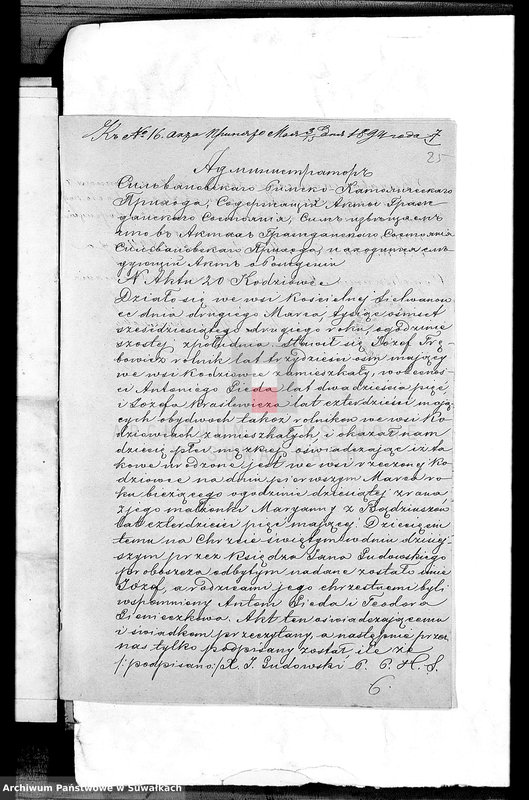 Къ № 16. дѣла Прихода Мая 3/15 дня 1894 года
25
Администраторъ
Сильвановскаго Римско-Католическаго
Прихода, Содержащій Акты Граж-
данскаго Состоянія, Симъ извѣщаемъ
что въ Актахъ Гражданскаго Состоянія
Сильвановскаго Прихода, находится слѣ-
дующій Актъ о Рожденіи
N Aktu 20 Kodziowce
Działo się we wsi Kościelnej Sielwanow-
ce dnia drugiego Marca, tysiąc ośmset
sześćdziesiątego drugiego roku, o godzinie
szóstej z południa, stawił się Józef Trę-
bowicz rolnik lat trzydzieści ośm mający
we wsi Kodziowce zamieszkały, w obecnoś-
ci Antoniego Pieda lat dwadzieścia pięć
i Józefa Kraśewicza lat czterdzieści mają-
cych obydwóch także rolników we wsi Ko-
dziowcach zamieszkałych, i okazał nam
dziecię płci męzkiej, oświadczając iż ta-
kowe urodzone jest we wsi rzeczonej Ko-
dziowce na dniu pierwszym Marca ro-
ku bieżącego o godzinie dziesiątej z rana
z jego małżonki Maryanny z Bądziuszów
lat czterdzieści pięć mającej. Dziecięciu
temu na Chrzcie świętym w dniu dzisiej-
szym przez Księdza Jana Ludowskiego
proboszcza odbytym nadane zostało imie
Józef, a rodzicami jego chrzestnemi byli
wspomniony Antoni Pieda i Teodora
Sienieczkowa. Akt ten oświadczającemu
i świadkom przeczytany, a następnie przez
nas tylko podpisany został ile że
/:podpisano:/ X. J. Ludowski P. P. H. S.
6.
Archiwum Państwowe w Suwałkach